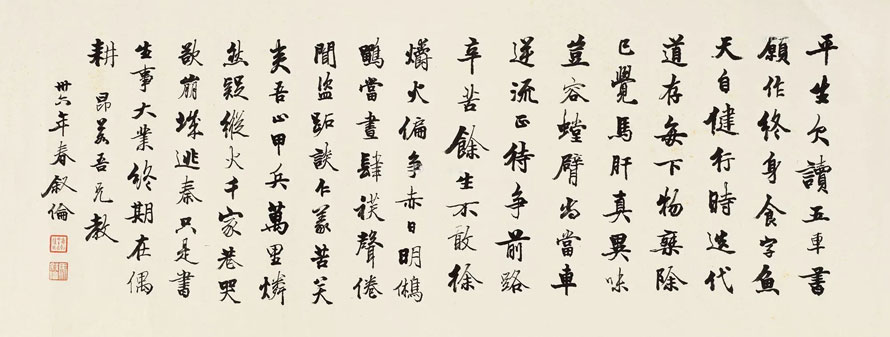 平生欠讀五車書
願作終身食字魚
天自健行時迭代
道存每下物乘除
已覺馬肝真異味
豈容螳臂尚當車
逆流正待爭前路
辛苦餘生不敢徐
爝火偏爭赤日明鵂
鶹當晝肆聲倦
聞盜跖談仁義苦笑
夷吾心甲兵萬里燐
然疑縱火千家巷哭
欲崩城逃秦只是書
生事大業終期在偶
耕 昂若吾兄教
卅六年春叙倫